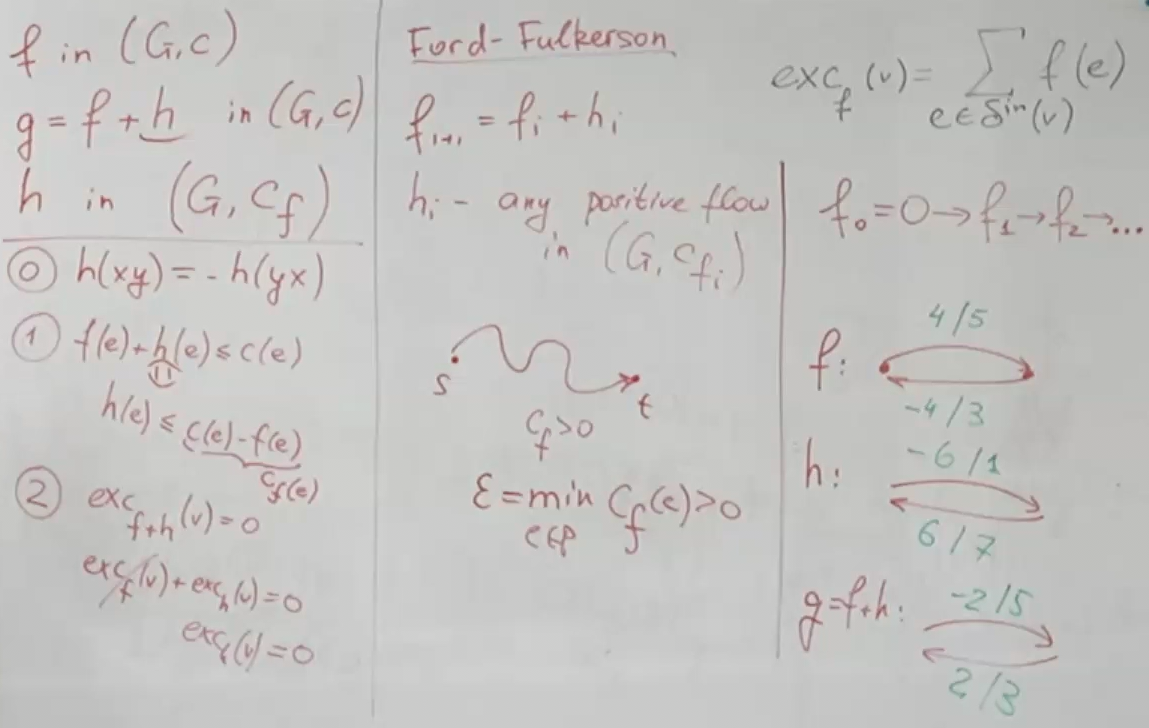 f in (G,c)
g = f + h in (G,c)
h in (G, c_f)
⓪ h(xy) = - h(yx)
① f(e) + h(e) ≤ c(e)
h(e) ≤ c(e) - f(e)
c_f(e)
② exc_{f+h}(v) = 0
exc_f(v) + exc_h(v) = 0
exc_h(v) = 0
Ford-Fulkerson
f_{i+1} = f_i + h_i
h_i - any positive flow
in (G, c_{f_i})
s
t
c_f > 0
ε = min c_f(e) > 0
e∈p
exc_f(v) = ∑ f(e)
e∈δ^{in}(v)
f_0 = 0 → f_1 → f_2 → ...
4/5
f:
-4/3
-6/1
h:
6/7
g=f+h: -2/5
2/3